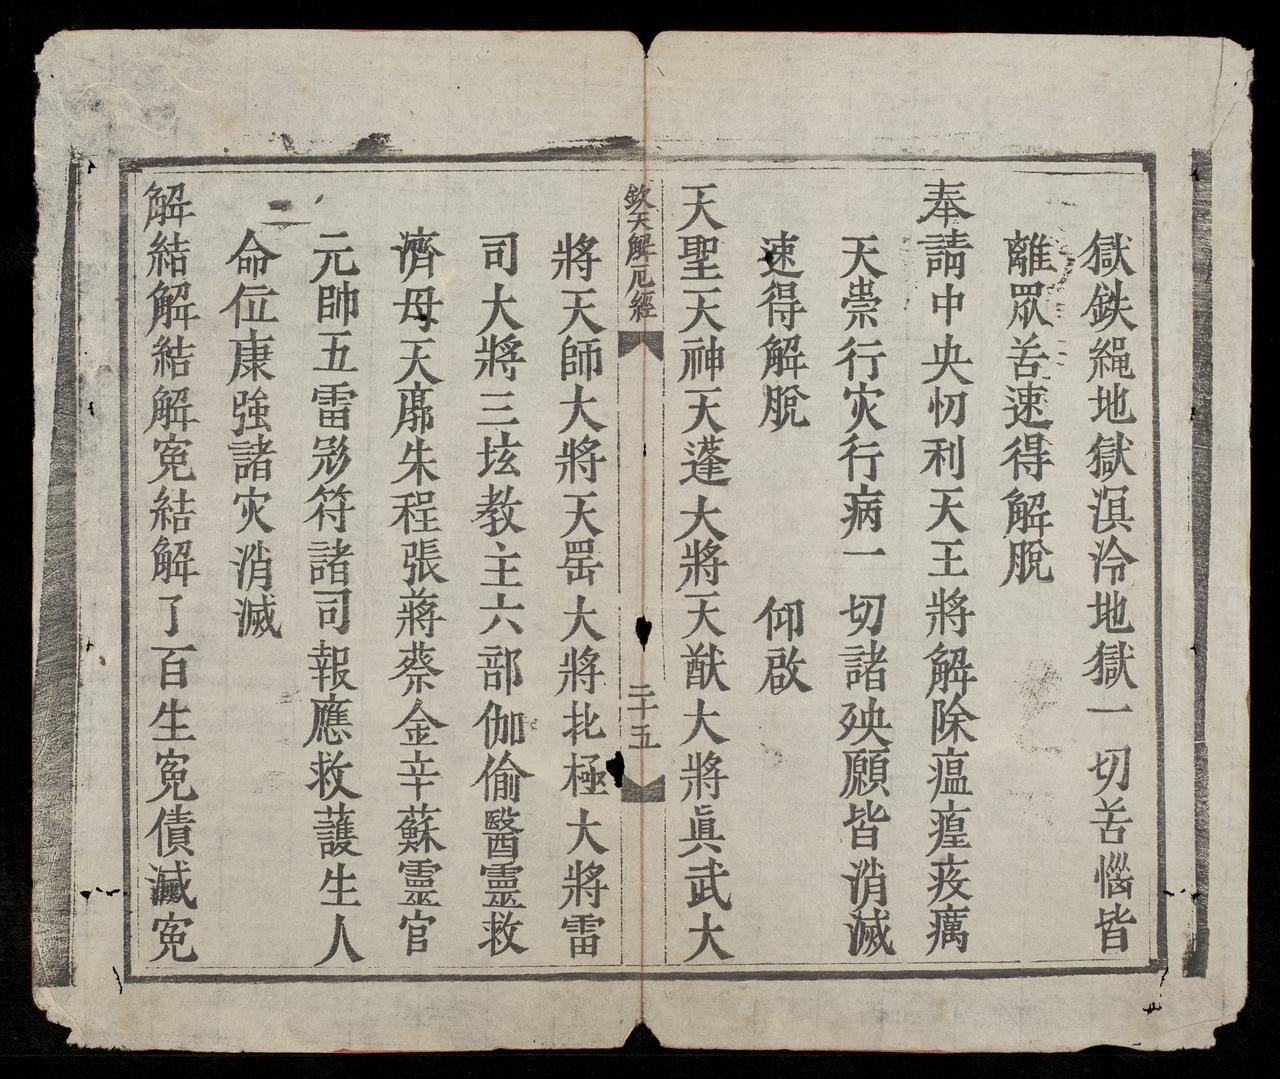 獄鉄繩地獄溟泠地獄一切苦惱皆
離眾苦速得解脫
奉請中央忉利天王將解除瘟㾮疫癘
天祟行灾行病一切諸殃願皆消滅
速得解脫 仰啟
天聖天神天蓬大將天猷大將眞武大
欽天解厄經 二十五
將天師大將天罡大將北極大將雷
司大將三坛教主六部伽偷醫靈救
濟母天廓朱程張蔣蔡金辛蘇靈官
元帥五雷邠符諸司報應救護生人
命位康強諸灾消滅
解結解結解寃結解了百生寃債滅寃